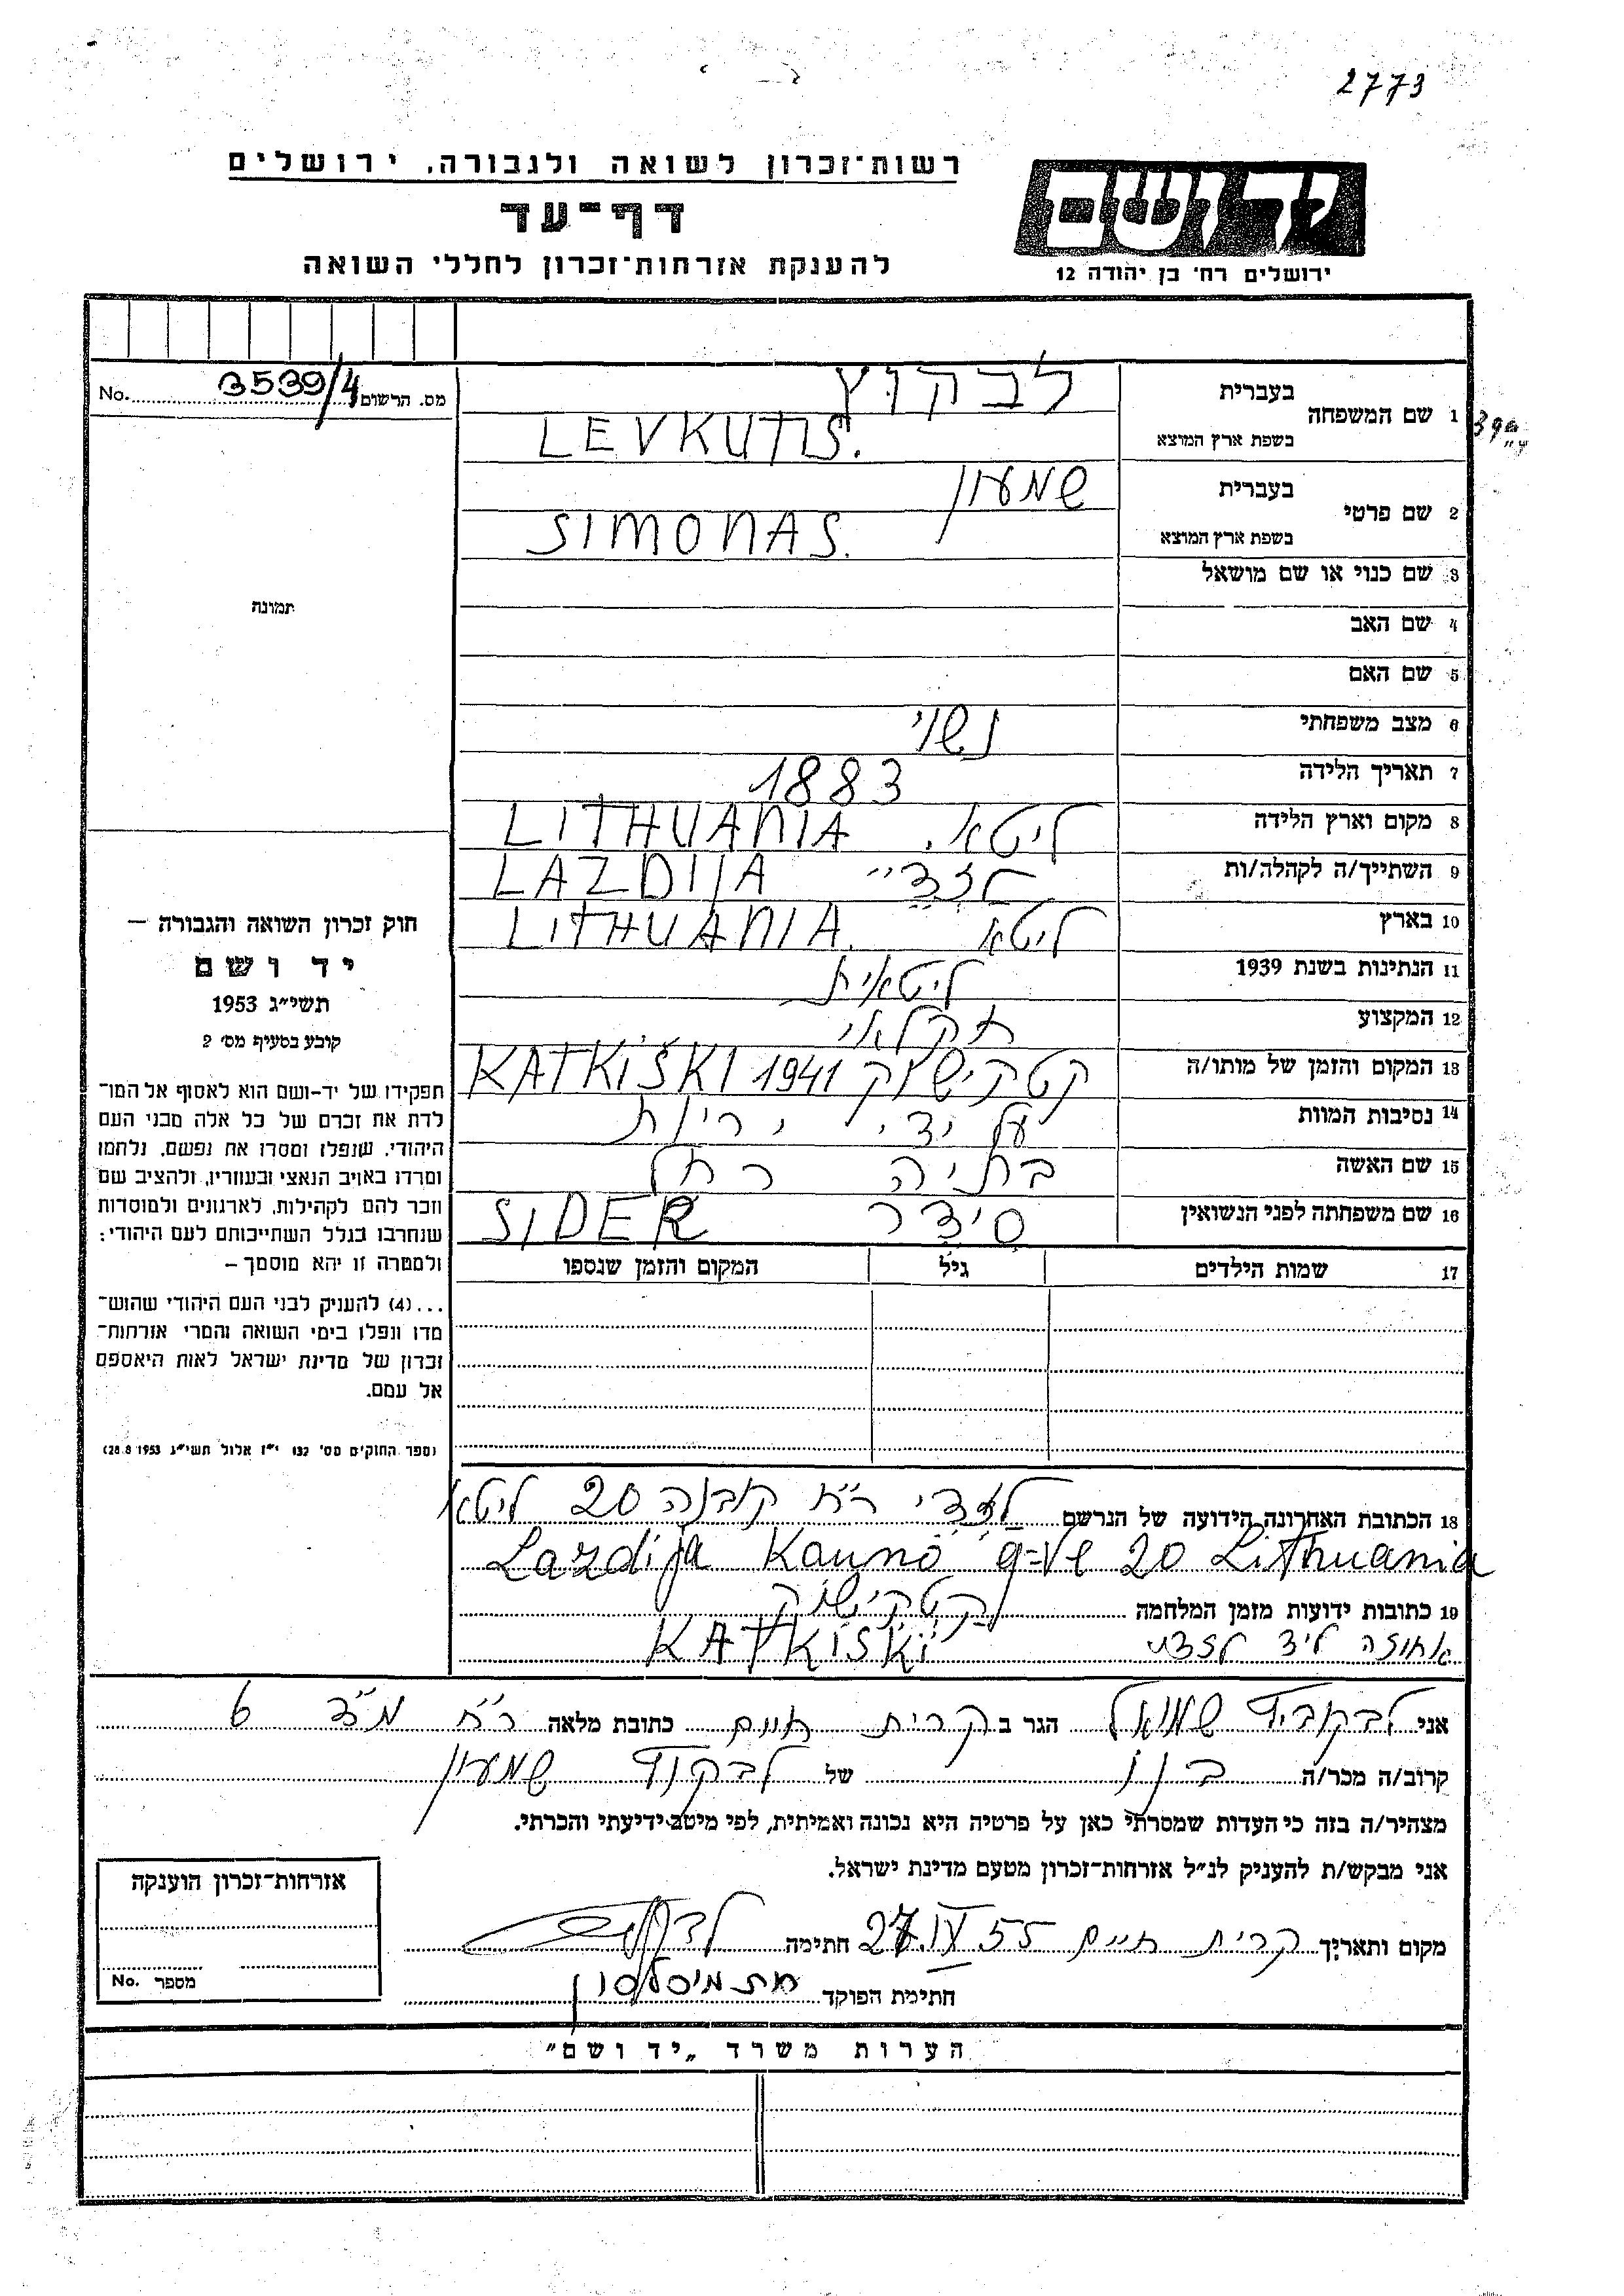 2773
רשות-זכרון לשואה ולגבורה, ירושלים
דף-עד
להענקת אזרחות-זכרון לחללי השואה
יד ושם
ירושלים רח' בן יהודה 12
מס. הרשום 3539/4 No.
1 שם המשפחה
בעברית לבקוץ
בשפת ארץ המוצא LEVKUTIS.
2 שם פרטי
בעברית שמעון
בשפת ארץ המוצא SIMONAS.
3 שם כנוי או שם מושאל
4 שם האב
5 שם האם
6 מצב משפחתי נשוי
7 תאריך הלידה 1883
8 מקום וארץ הלידה ליטא. LITHUANIA
9 השתייך/ה לקהלה/ות לזדיי LAZDIJA
10 בארץ ליטא LITHUANIA.
11 הנתינות בשנת 1939 ליטאית
12 המקצוע חקלאי
13 המקום והזמן של מותו/ה קטקישוק KATKISKI 1941
14 נסיבות המוות על ידי יריות
15 שם האשה בתיה רחל
16 שם משפחתה לפני הנשואין סידר SIDER
17 שמות הילדים גיל המקום והזמן שנספו
תמונה
חוק זכרון השואה והגבורה —
יד ושם
תשי"ג 1953
קובע בסעיף מס' 2
תפקידו של יד-ושם הוא לאסוף אל המו-
לדת את זכרם של כל אלה מבני העם
היהודי, שנפלו ומסרו את נפשם, נלחמו
ומרדו באויב הנאצי ובעוזריו, ולהציב שם
וזכר להם לקהילות, לארגונים ולמוסדות
שנחרבו בגלל השתייכותם לעם היהודי;
ולמטרה זו יהא מוסמך —
...(4) להעניק לבני העם היהודי שהוש-
מדו ונפלו בימי השואה והמרי אזרחות-
זכרון של מדינת ישראל לאות היאספם
אל עמם.
(ספר החוקים מס' 132 י"ז אלול תשי"ג 28.8.1953)
18 הכתובת האחרונה הידועה של הנרשם לזדי רח קובנה 20 ליטא
Lazdija Kauno g-ve 20 Lithuania
19 כתובות ידועות מזמן המלחמה קטקישוק
אחוזה ליד לזדי KATKISKI
אני לבקוביץ שמואל הגר ב קרית חיים כתובת מלאה רח מ"ד 6
קרוב/ה מכר/ה בנו של לבקוץ שמעון
מצהיר/ה בזה כי העדות שמסרתי כאן על פרטיה היא נכונה ואמיתית, לפי מיטב ידיעתי והכרתי.
אני מבקש/ת להעניק לנ"ל אזרחות-זכרון מטעם מדינת ישראל.
מקום ותאריך קרית חיים 27.IV 55 חתימה
חתימת הפוקד
אזרחות-זכרון הוענקה
מספר No.
הערות משרד „יד ושם"